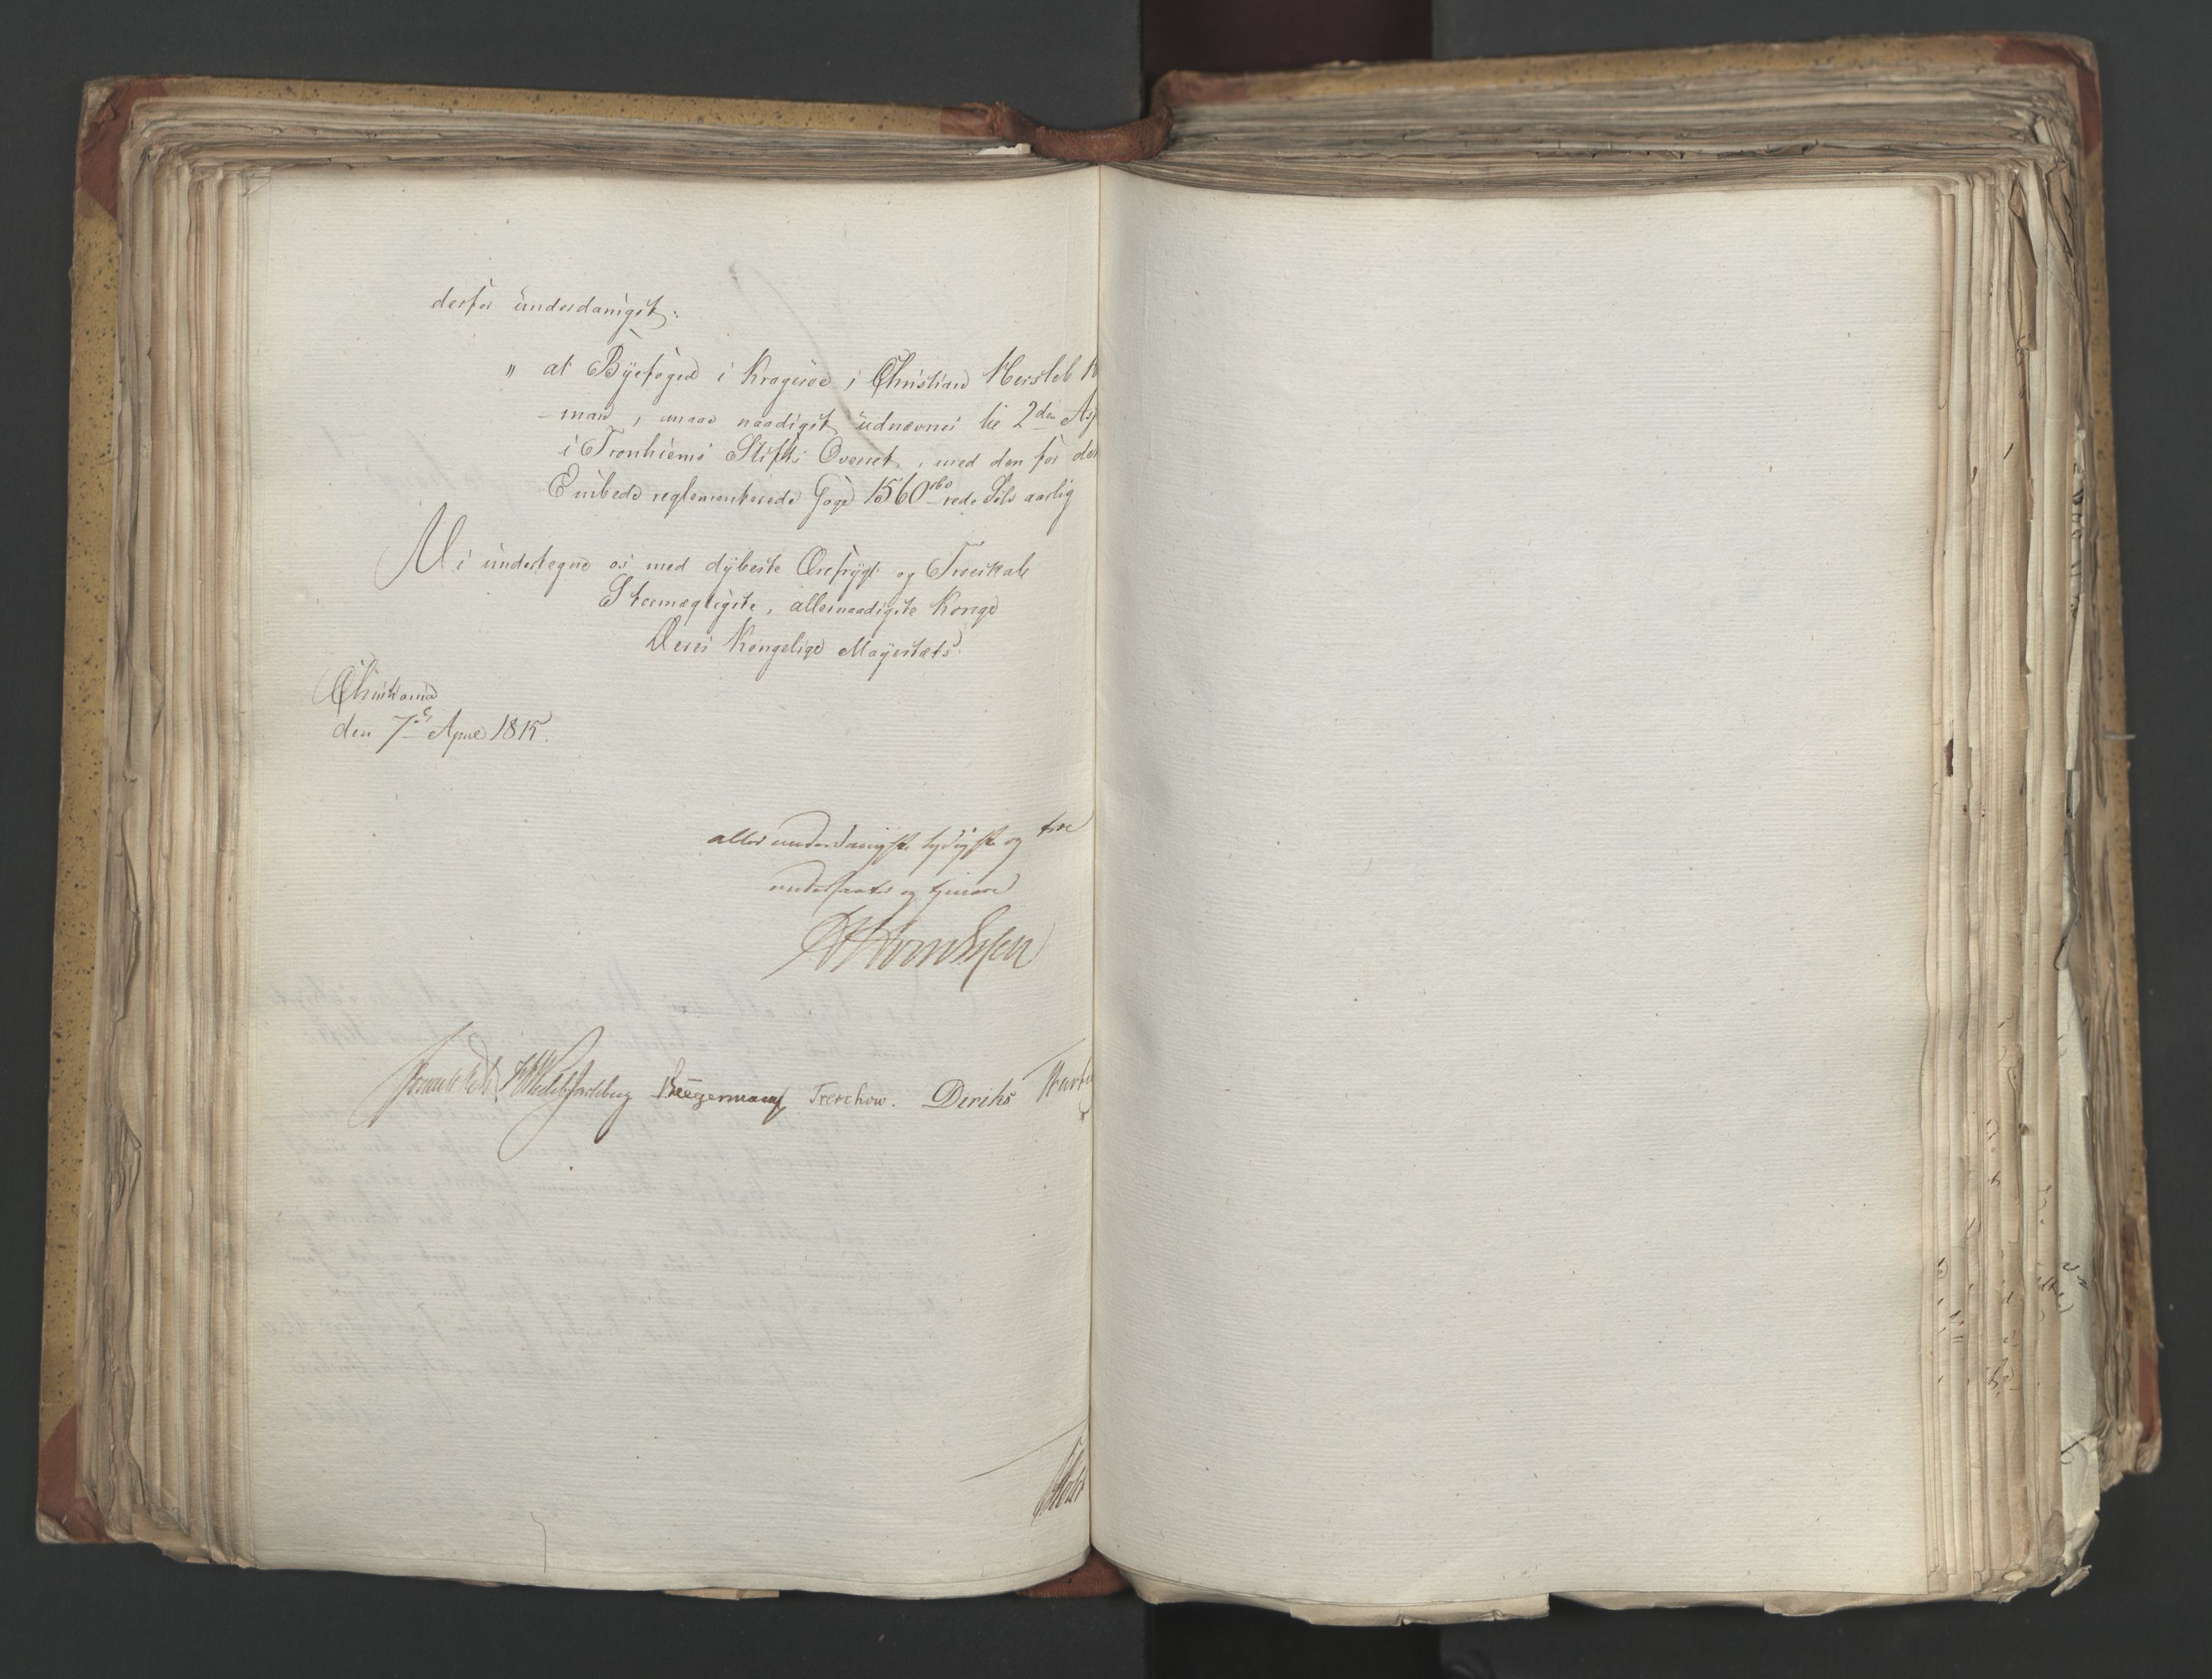 derfor underdanigst:
" at Byefoged i Krageröe, Christian Hersleb H
-man, maae naadigst udnævnes til 2den As
i Tronhiems Stifts Overret, med den for de
Embede reglementerede Gage 1560 rbd rede Sölv aarlig
Vi undertegne os med dybeste Ærefrygt og Troeskab
Stormægtigste, allernaadigste Konge
Deres Kongelige Mayestæts
Christiania
den 7de April 1815.
allerunderdanigste lydigste og troe
undersaatter og tjenere
Sommerhielm Wedel Jarlsberg Krieger Treschow. Diriks